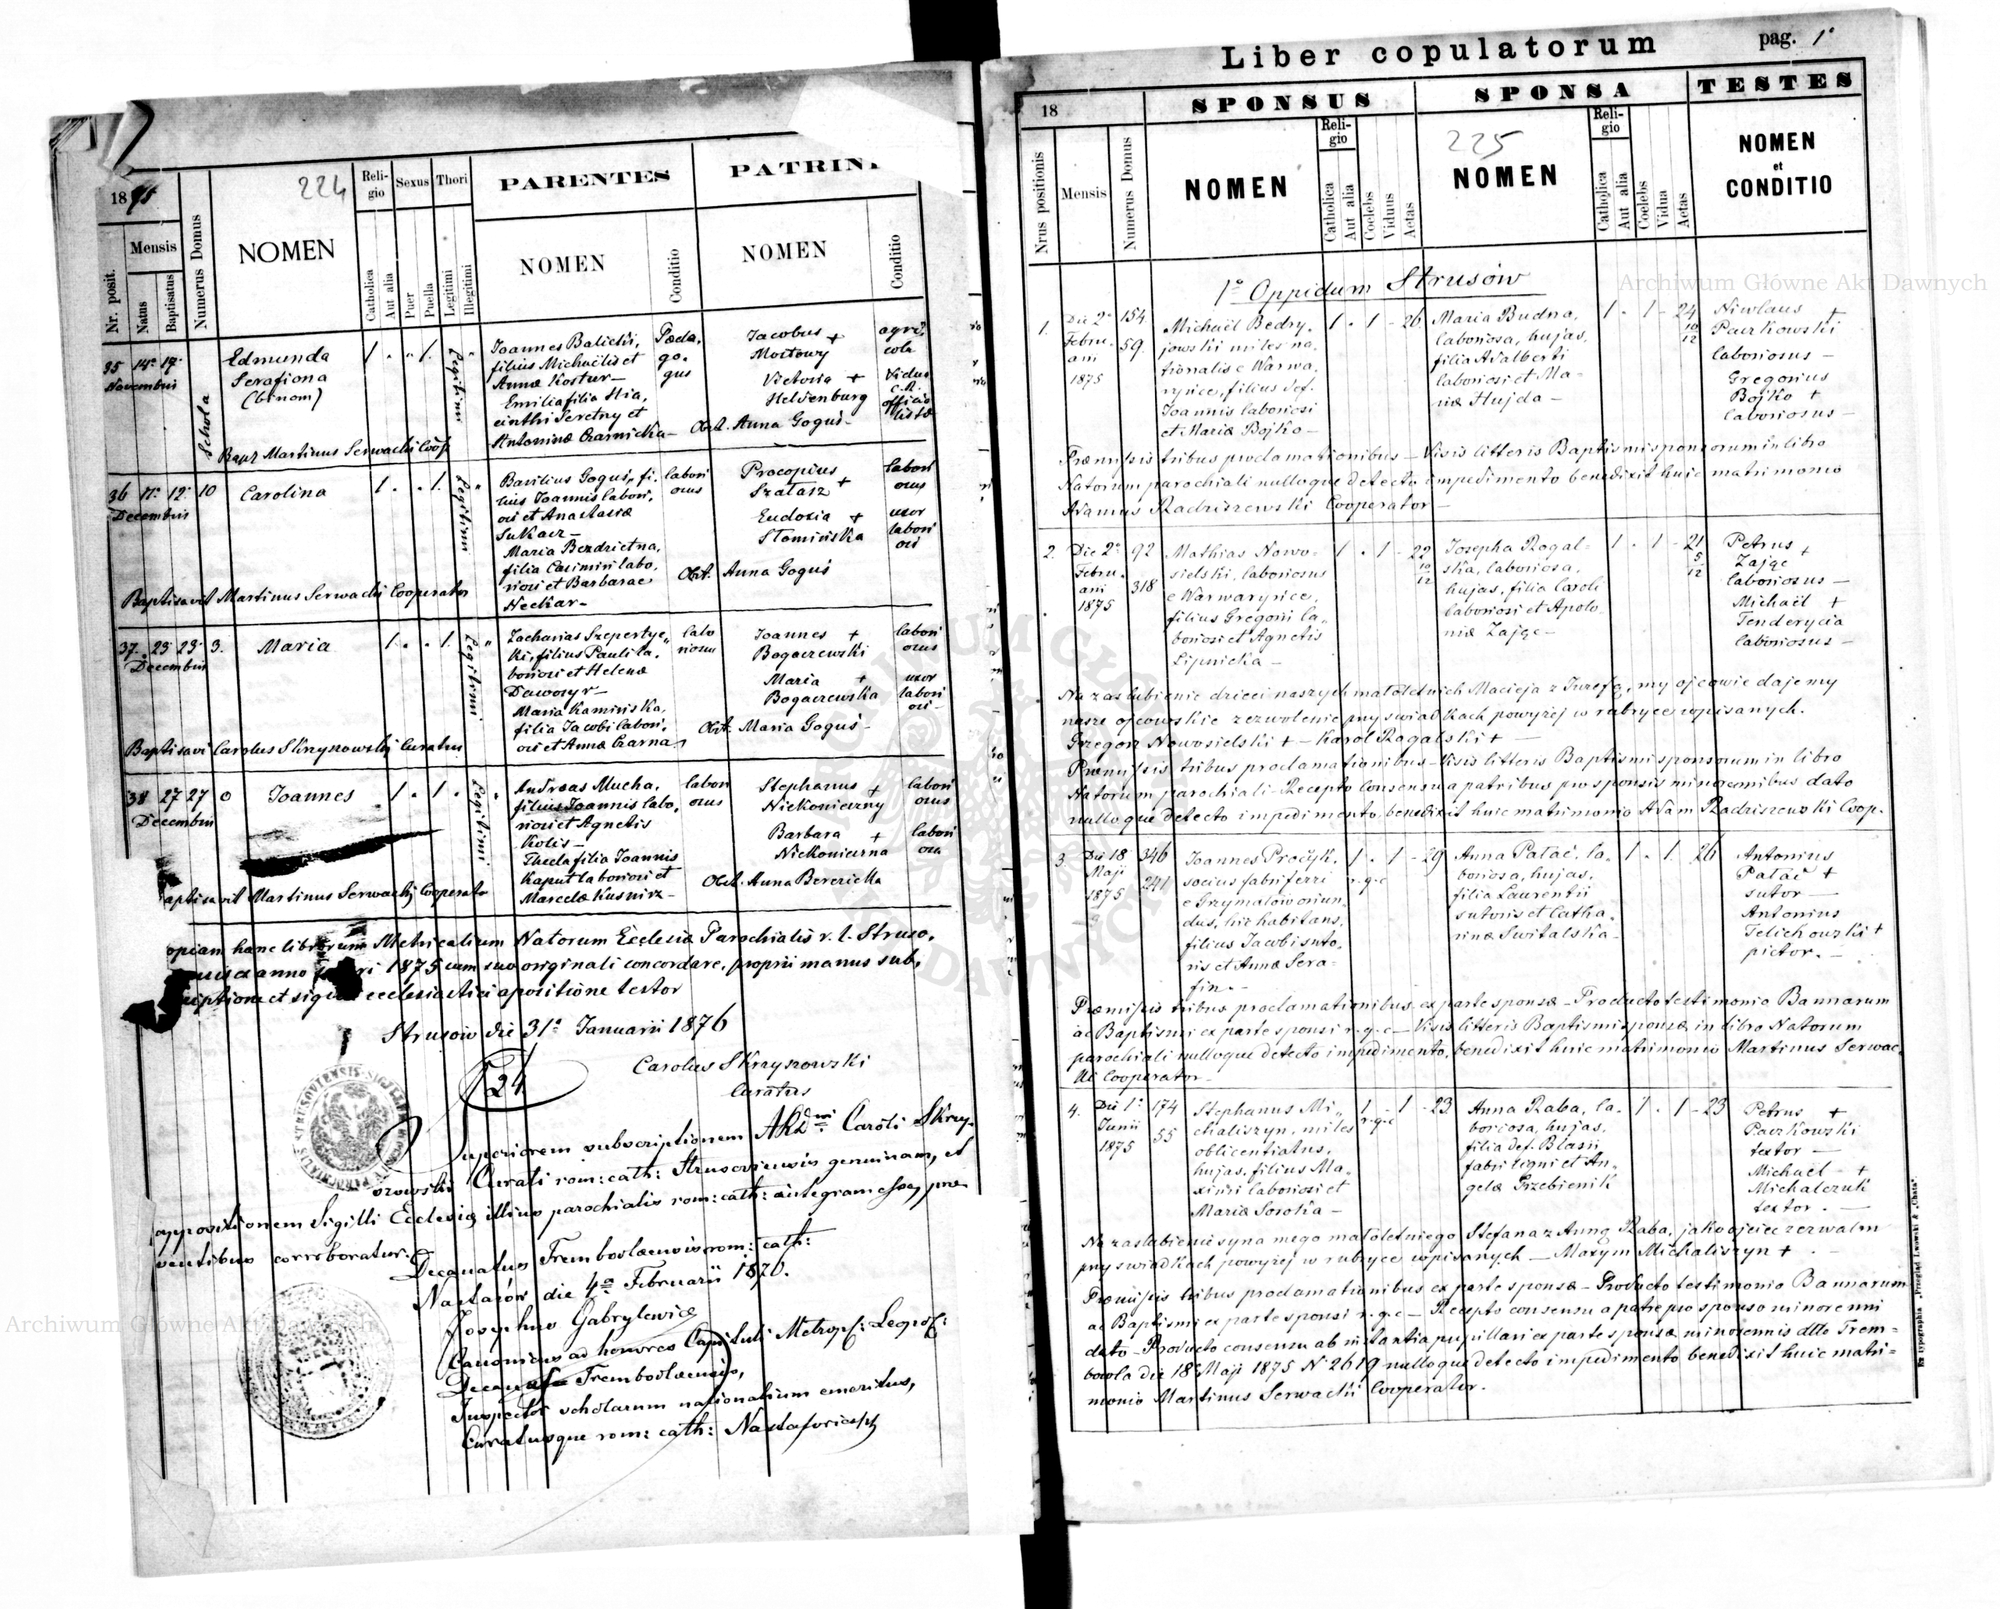 1875
224
Nr. posit.
Mensis
Natus
Baptisatus
Numerus Domus
NOMEN
Reli-
gio
Catholica
Aut alia
Sexus
Puer
Puella
Thori
Legitimi
Illegitimi
PARENTES
NOMEN
Conditio
PATRINI
NOMEN
Conditio
35 14a 17a
Novembris
Schola
Edmunda
Serafiona
(binom)
1 . " 1.
Legitimi
Joannes Balicki,
filius Michaelis et
Anna Kostur —
Emilia filia Hia,
cinthi Seretny et
Antoninæ Czarnicka —
Pæda,
go.
gus
Jacobus +
Mostowy
Victoria +
Heldenburg
Obst. Anna Goguś —
agri,
cola
Vidua
c.R.
officia
listæ
Bapt Martinus Serwacki Coop
36 17a 12a 10
Decembris
Carolina
1 . . 1.
Legitimi
Basilius Goguś, fi,
lius Joannis labori,
osi et Anastasiæ
Sukacz —
Maria Bezdzietna,
filia Casimiri labo,
riosi et Barbarae
Neckar —
labori
osus
Procopius +
Szatasz
Eudoxia +
Stominska
Obst. Anna Goguś
labori
osus
uxor
labori
osi
Baptisavit Martinus Serwacki Cooperator
37. 23 23 3.
Decembris
Maria
1 . . 1.
Legitimi
Zacharias Szepertyc,
ki, filius Pauli la,
boriosi et Helenæ
Dawosyr —
Maria Kaminska,
filia Jacobi labori,
osi et Annæ Czarna —
labo
riosus
Joannes +
Bogaczewski
Maria +
Bogaczewska
Obst. Maria Goguś —
labori
osus
uxor
labori
osi —
Baptisavi Carolus Skrzyszowski Curatus
38 27 27 0
Decembris
Joannes
1 . 1 .
Legitimi
Andreas Mucha,
filius Joannis labo,
riosi et Agnetis
Kolis —
Thecla filia Joannis
Kaput laboriosi et
Marcelæ Kusnirz —
labori
osus
Stephanus +
Nickonieczny
Barbara +
Nickonieczna
Obst. Anna Berezicka
labori
osus
labori
osa
aptisavit Martinus Serwacki Cooperato
opiam hanc librorum Metricalium Natorum Ecclesiæ Parochialis r. l. Struso,
ex anno 1875 cum suo originali concordare, proprii manus sub,
scriptione et sigilli ecclesiastici apositione testor
Strusow die 31a Januarii 1876
Carolus Skrzyszowski
Curatus
24
Superiorem subscriptionem Caroli Skrzy-
szowski Curati rom: cath: Strusoviensis genuinam, et
appositionem Sigilli Ecclesiæ illius parochialis rom: cath: integram esse, præ
sentibus corroboratur.
Decanatus Trembowlaensis rom: cath:
Nastasów die 4a Februarii 1876.
Josephus Gabrylewicz
Canonicus ad honores Capituli Metrop: Leopol:
Decanus Trembowlaensis,
Inspector scholarum nationalium emeritus,
Curatusque rom: cath: Nastasoviensis
Liber copulatorum
pag. 1a
18
SPONSUS
SPONSA
TESTES
225
Nrus positionis
Mensis
Numerus Domus
NOMEN
Reli-
gio
Catholica
Aut alia
Coelebs
Viduus
Aetas
NOMEN
Reli-
gio
Catholica
Aut alia
Coelebs
Vidua
Aetas
NOMEN
et
CONDITIO
1o Oppidum Strusów
1.
Die 2a
Febru,
arii
1875
154
59.
Michaël Bedry,
jowski miles na,
tionalis e Warwa,
ryńce, filius def.
Joannis laboriosi
et Mariæ Bojko —
1 . 1 - 26
Maria Budna,
laboriosa, hujas,
filia Adalberti
laboriosi et Ma-
riæ Hujda —
1 . 1 - 24
10
12
Nicolaus +
Paczkowski
laboriosus —
Gregorius
Bojko +
laboriosus —
Præmissis tribus proclamationibus — Visis litteris Baptismi sponsorum in libro
Natorum parochiali nulloque detecto impedimento benedixit huic matrimonio
Adamus Radziszewski Cooperator —
2.
Die 2a
Febru,
arii
1875
92
318
Mathias Nowo-
sielski, laboriosus
e Warwaryńce,
filius Gregorii la,
boriosi et Agnetis
Lipnicka —
1 . 1 - 22
10
12
Josepha Rogal-
ska, laboriosa,
hujas, filia Caroli
laboriosi et Apolo
niæ Zając —
1 . 1 - 21
5
12
Petrus +
Zając
laboriosus —
Michaël +
Tenderycia
laboriosus —
Na zaslubienie dzieci naszych małoletnich Macieja z Jozefą, my ojcowie dajemy
nasze ojcowskie zezwolenie przy swiadkach powyżej w rubryce wpisanych.
Grzegorz Nowosielski + — Karol Rogalski + —
Præmissis tribus proclamationibus — Visis litteris Baptismi sponsorum in libro
Natorum parochiali — Recepto consensu a patribus pro sponsis minorennibus dato
nulloque detecto impedimento benedixit huic matrimonio Adam Radziszewski Coop.
3
Die 18
Maji
1875
346
241
Joannes Procyk,
socius fabri ferri
e Grzymałów oriun-
dus, hic habitans,
filius Jacobi suto,
ris et Annæ Sera-
fin. —
1 . 1 - 29
r.g.c
Anna Patac, la-
boriosa, hujas,
filia Laurentii
sutoris et Catha-
rinæ Switalska —
1 . 1. 26
Antonius
Patac +
sutor —
Antonius
Telichowski +
pictor. —
Præmissis tribus proclamationibus ex parte sponsæ — Producto testimonio Bannorum
ac Baptismi ex parte sponsi r.g.c — Visis litteris Baptismi sponsæ in libro Natorum
parochiali nulloque detecto impedimento, benedixit huic matrimonio Martinus Serwac,
ki Cooperator —
4.
Die 1a
Junii
1875
174
55
Stephanus Mi-
chaliszyn, miles
oblicentiatus,
hujas, filius Ma,
ximi laboriosi et
Mariæ Soroka —
1 - 1 - 23
r.g.c
Anna Raba, la-
boriosa, hujas,
filia def. Blasii
fabri ligni et An-
gelæ Grzebienik
1 . 1 - 23
Petrus +
Paczkowski
textor —
Michael +
Michalczuk
textor. —
Na zaslubienie syna mego małoletniego Stefana z Anną Raba, jako ojciec zezwalm
przy swiadkach powyżej w rubryce wpisanych — Maxym Michaliszyn +
Præmissis tribus proclamationibus ex parte sponsæ — Producto testimonio Bannorum
ac Baptismi ex parte sponsi r.g.c — Recepto consensu a patre pro sponso minorenni
dato — Producto consensu ab instantia pupillari ex parte sponsæ minorennis dtto Trem-
bowla die 18 Maji 1875 N. 2619 nulloque detecto impedimento benedixit huic matri-
monio Martinus Serwacki Cooperator.
Ex typographia „Przegląd Lwowski & „Chata".
Archiwum Główne Akt Dawnych
Archiwum Główne Akt Dawnych